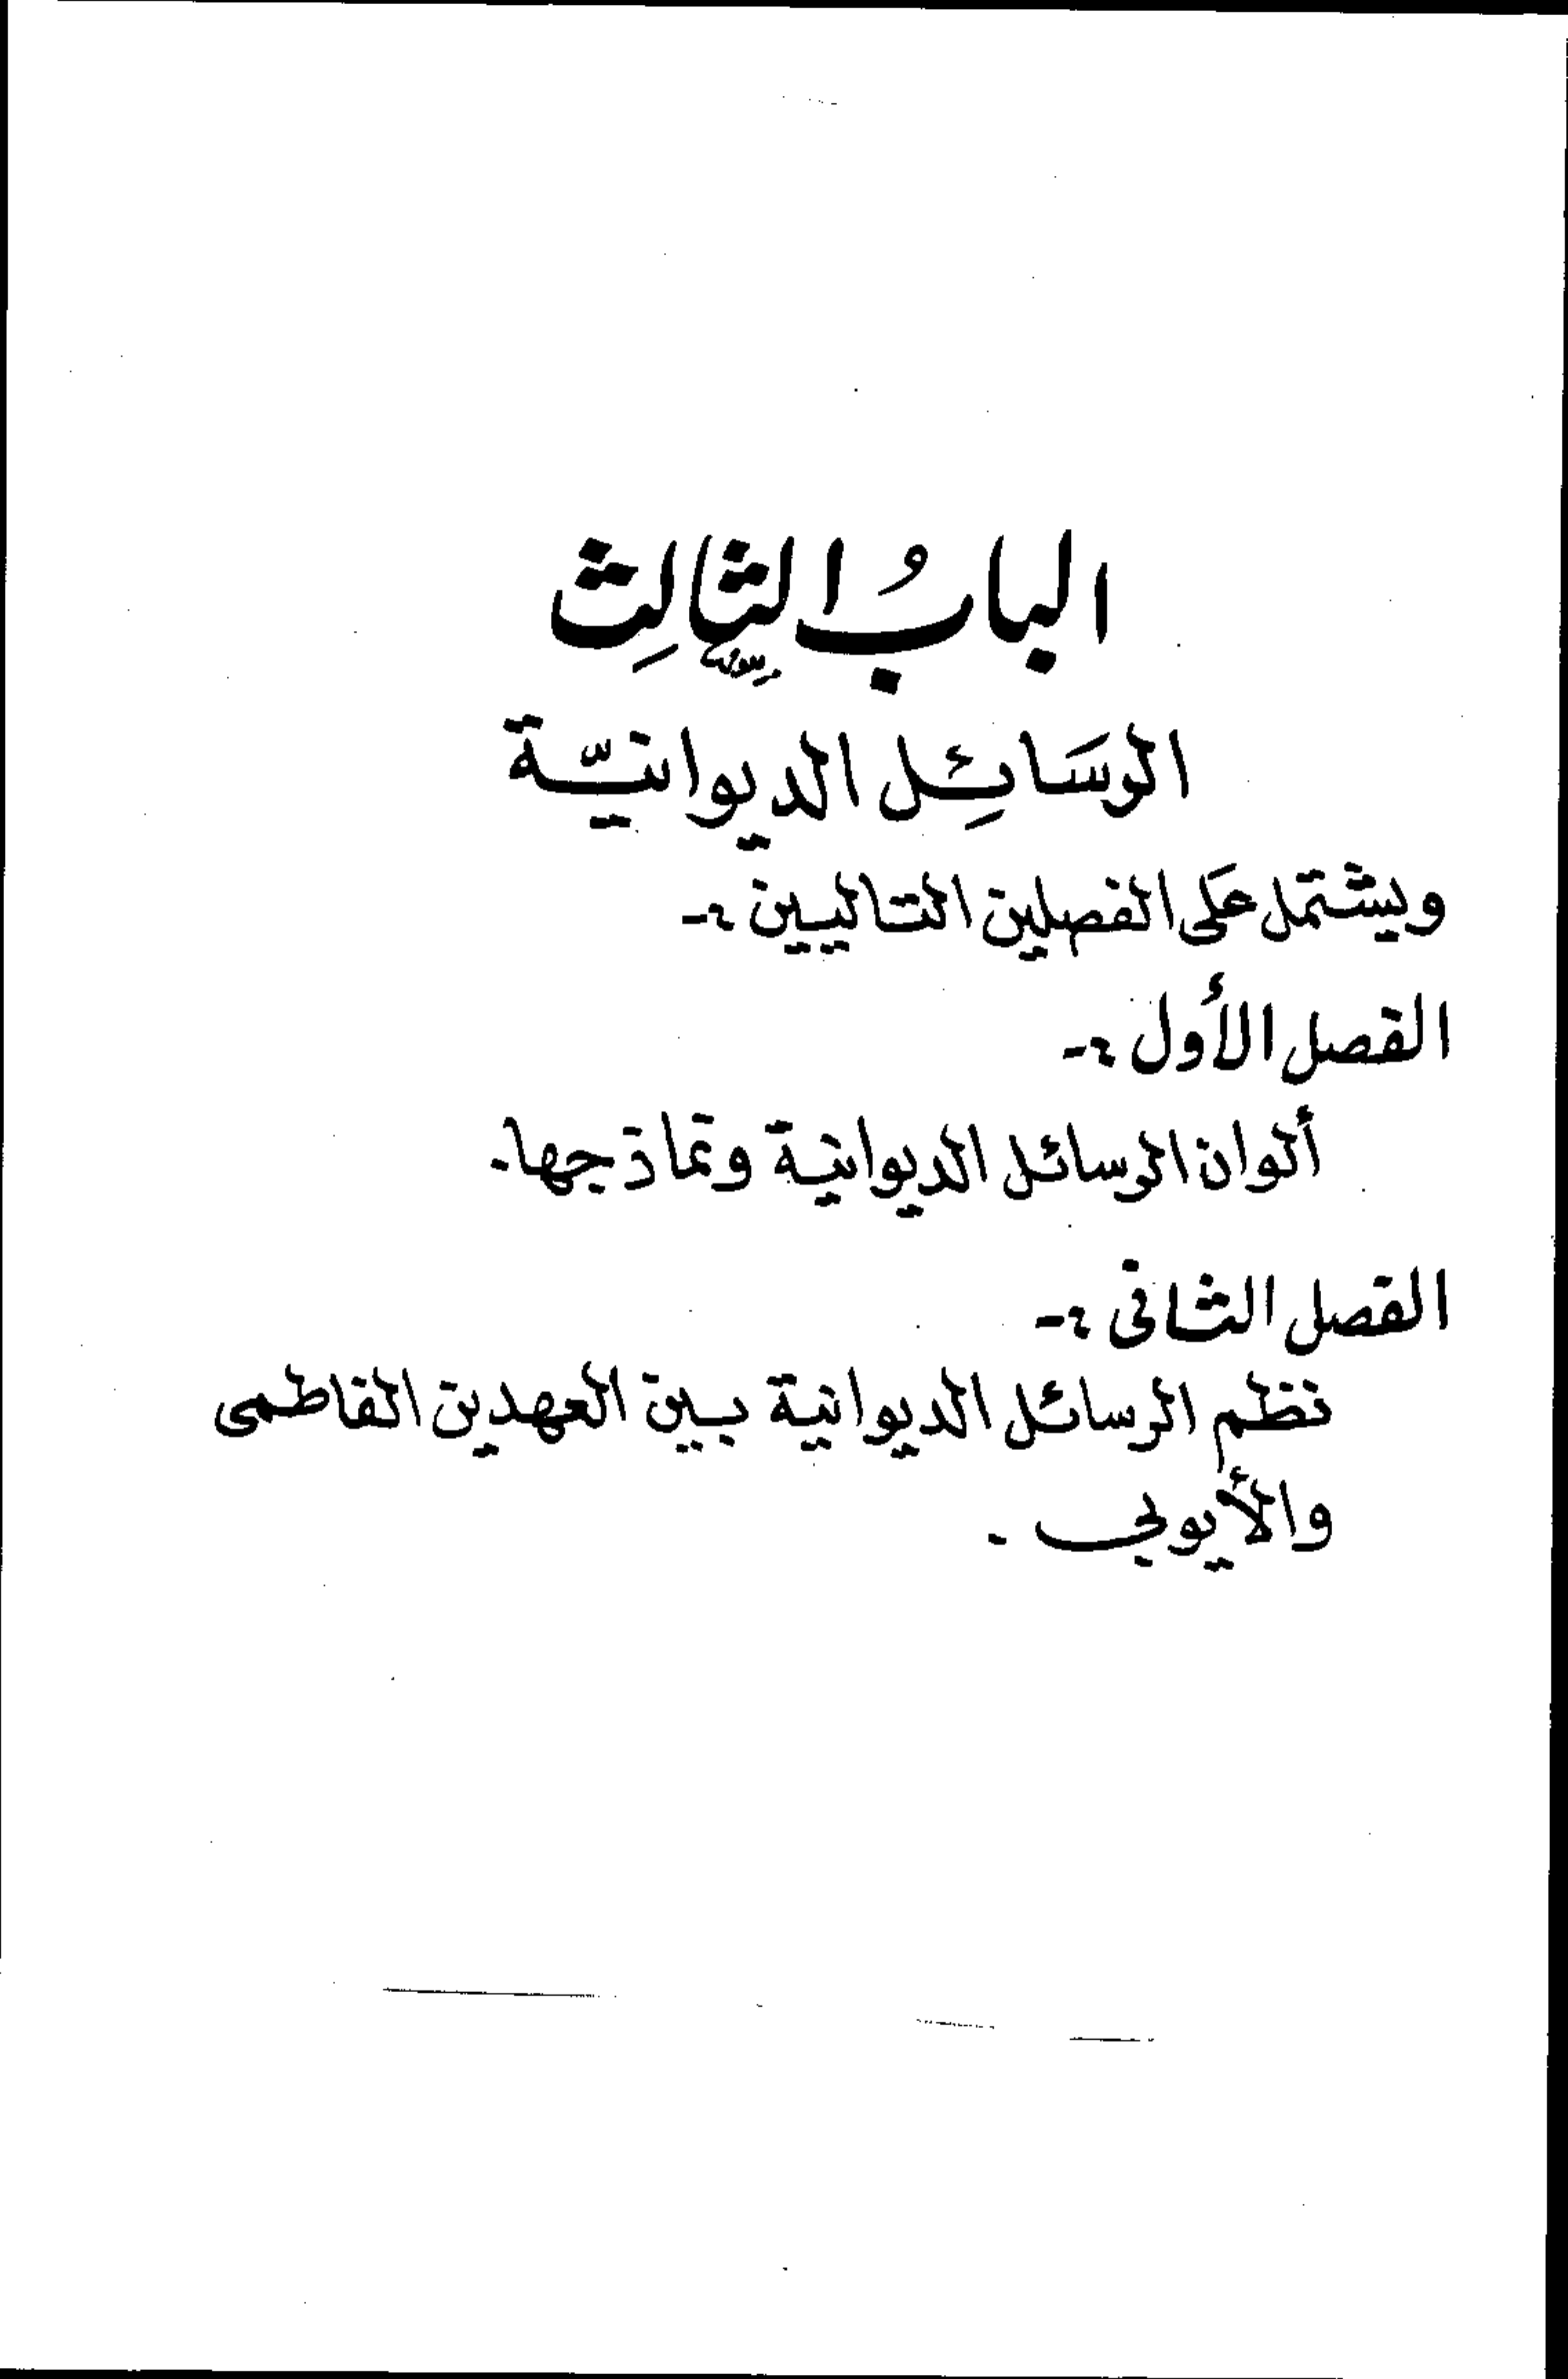 البابُ الثالِث
الرسَائِل الديوانيّة
ويشتمل عَلى الفصلين التاليين :-
الفصل الأول :-
ألوان الرسائل الديوانية ونماذجها.
الفصل الثانى :-
نظم الرسائل الديوانية بين العهدين الفاطمى
والأيوبي .